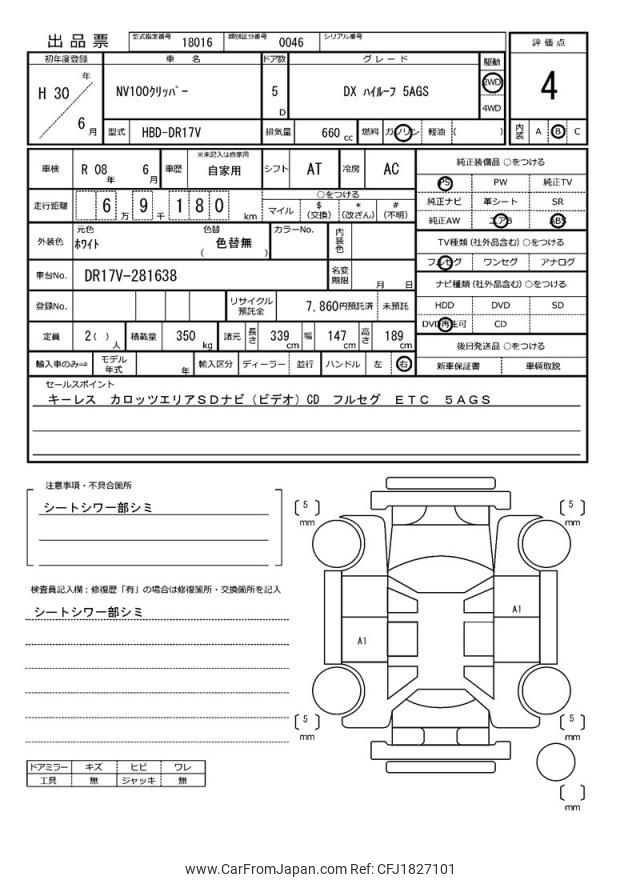 出品票 型式指定番号 18016 類別区分番号 0046 シリアル番号
評価点
4
内装 A B C
初年度登録 車名 ドア数 グレード 駆動
H 30 年 6 月 NV100クリッパー 5 D DX ハイルーフ 5AGS 2WD 4WD
型式 HBD-DR17V 排気量 660 cc 燃料 ガソリン 軽油 ( )
車検 R 08 年 6 月 車歴 ※未記入は自家用 自家用 シフト AT 冷房 AC
走行距離 6 万 9 千 1 8 0 km
○をつける
マイル $ (交換) * (改ざん) # (不明)
外装色 元色 ホワイト 色替 ( 色替無 ) カラーNo. 内装色
車台No. DR17V-281638 名変期限 月 日
登録No. リサイクル預託金 7,860円預託済 未預託
定員 2( ) 人 積載量 350 kg 諸元 長さ 339 cm 幅 147 cm 高さ 189 cm
輸入車のみ⇒ モデル年式 年 輸入区分 ディーラー 並行 ハンドル 左 右
純正装備品 ○をつける
PS PW 純正TV
純正ナビ 革シート SR
純正AW エアB ABS
TV種類 (社外品含む) ○をつける
フルセグ ワンセグ アナログ
ナビ種類 (社外品含む) ○をつける
HDD DVD SD
DVD再生可 CD
後日発送品 ○をつける
新車保証書 車輌取説
セールスポイント
キーレス カロッツエリアSDナビ (ビデオ) CD フルセグ ETC 5AGS
注意事項・不具合箇所
シートシワー部シミ
検査員記入欄：修復歴「有」の場合は修復箇所・交換箇所を記入
シートシワー部シミ
ドアミラー キズ ヒビ ワレ
工具 無 ジャッキ 無
5 mm
5 mm
A1
A1
5 mm
5 mm
mm
www.CarFromJapan.com Ref: CFJ1827101